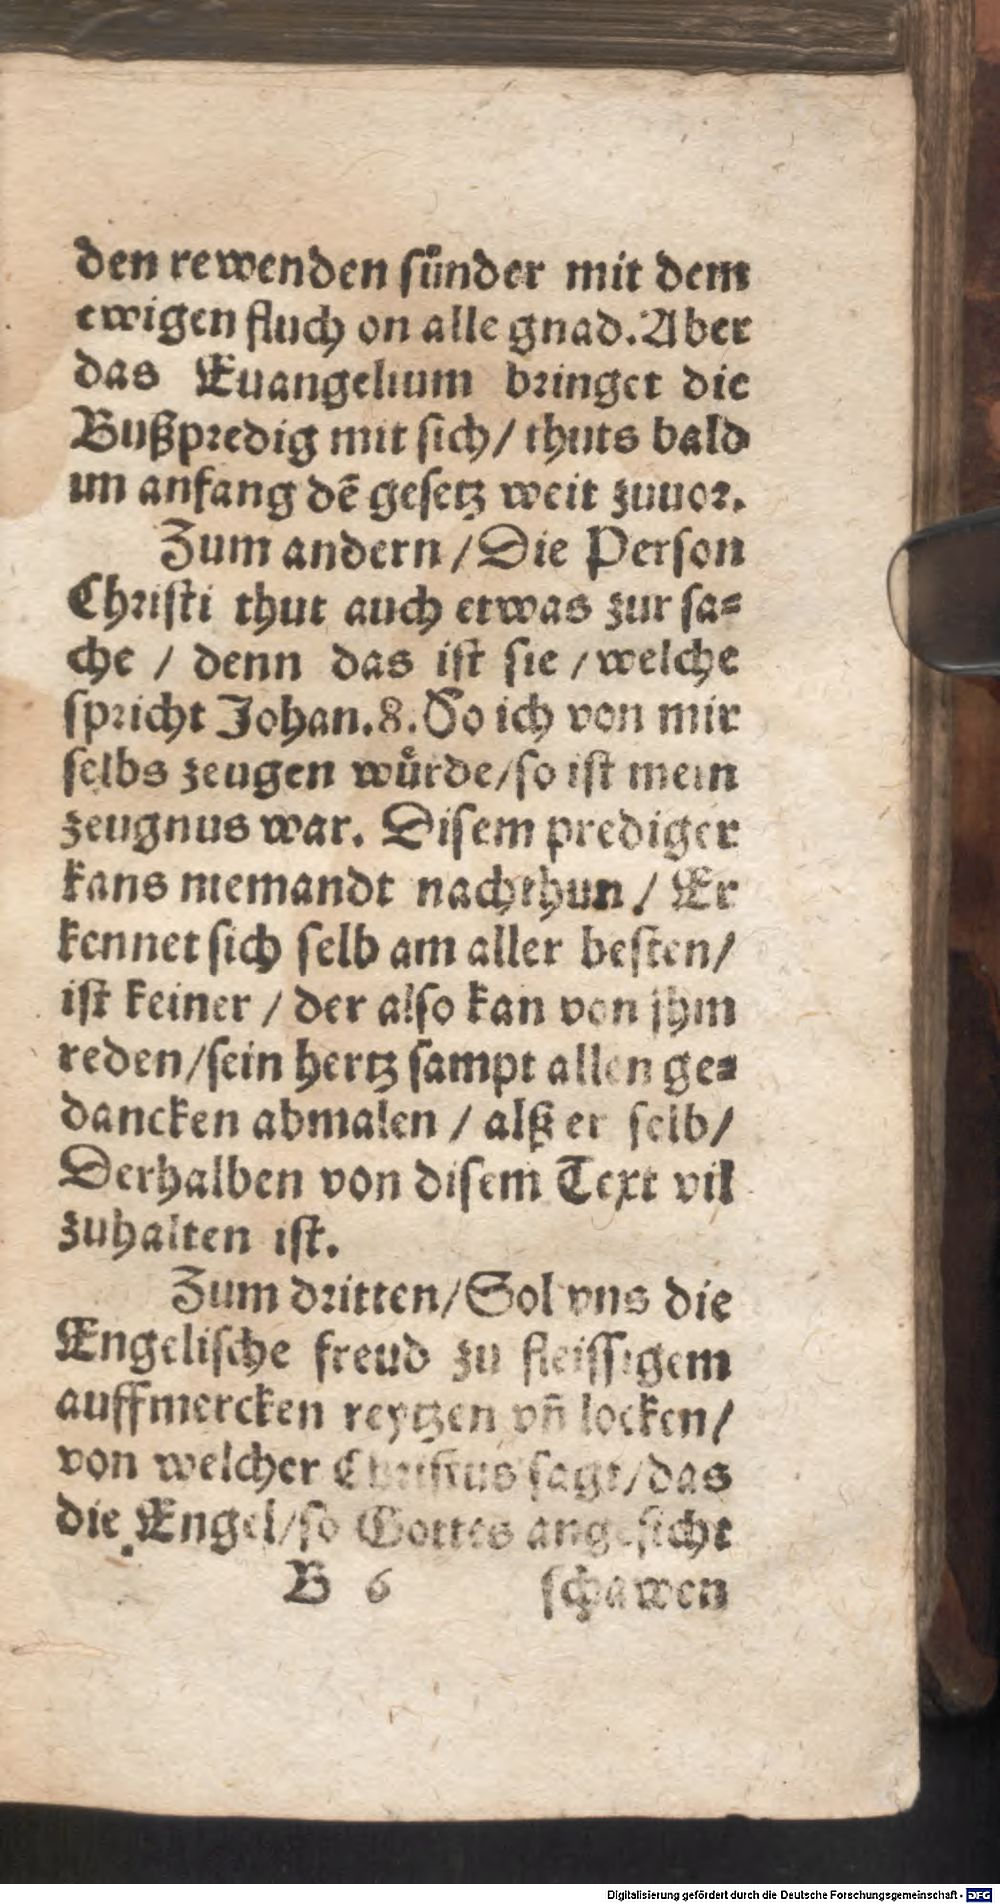 den rewenden sünder mit dem
ewigen fluch on alle gnad. Aber
das Euangelium bringet die
Bußpredig mit sich / thuts bald
im anfang dē gesetz weit zuuor.
Zum andern / Die Person
Christi thut auch etwas zur sa⸗
che / denn das ist sie / welche
spricht Johan. 8. So ich von mir
selbs zeugen wuͤrde / so ist mein
zeugnus war. Disem prediger
kans niemandt nachthun / Er
kennet sich selb am aller besten /
ist keiner / der also kan von jhm
reden / sein hertz sampt allen ge⸗
dancken abmalen / alß er selb /
Derhalben von disem Text vil
zuhalten ist.
Zum dritten / Sol vns die
Engelische freud zu fleissigem
auffmercken reytzen vñ locken /
von welcher Christus sagt / das
die Engel / so Gottes angesicht
B 6 schawen
Digitalisierung gefördert durch die Deutsche Forschungsgemeinschaft - DFG